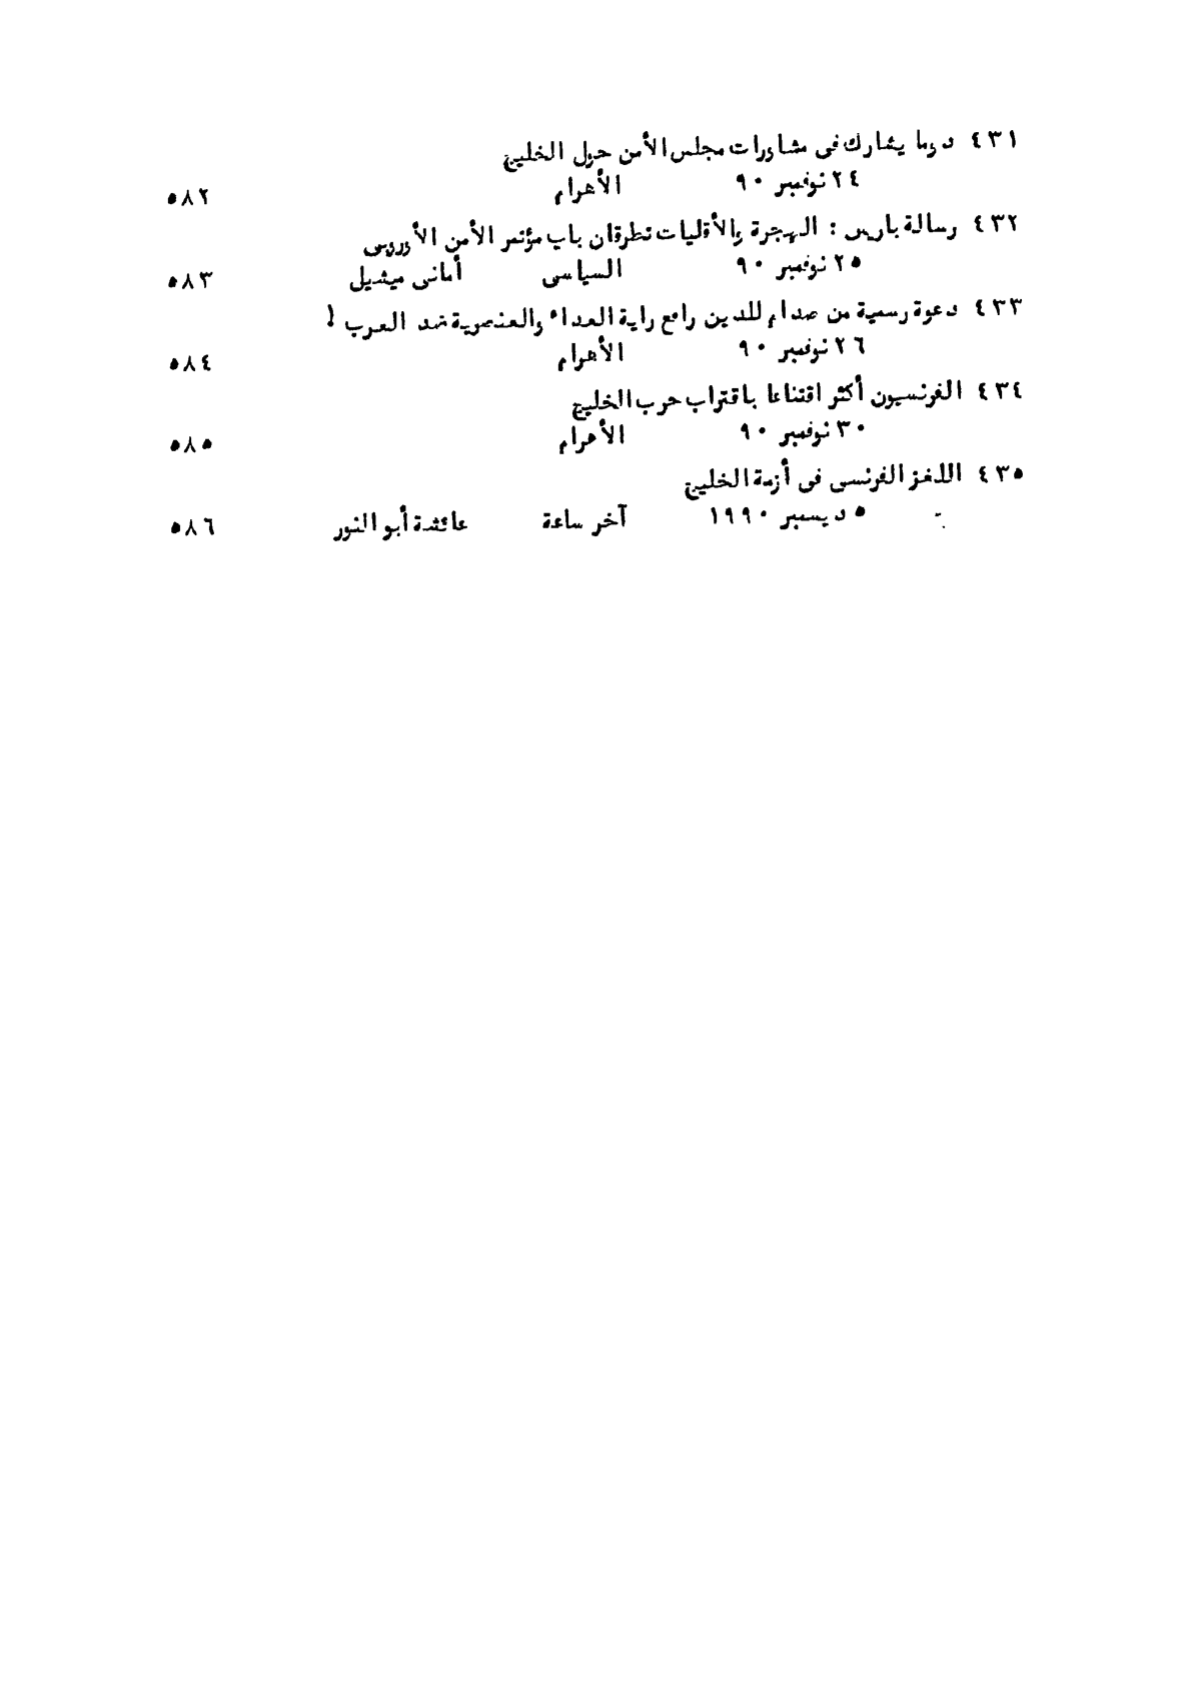 ٤٣١ دوما يشارك فى مشاورات مجلس الأمن حول الخليج
٢٤ نوفمبر ٩٠ الأهرام ٥٨٢
٤٣٢ رسالة باريس : الهجرة والأقليات تطرقان باب مؤتمر الأمن الأوروبى
٢٥ نوفمبر ٩٠ السياسى أمانى ميشيل ٥٨٣
٤٣٣ دعوة رسمية من صدام للدين رافع راية العداء والعنصرية ضد العرب !
٢٦ نوفمبر ٩٠ الأهرام ٥٨٤
٤٣٤ الفرنسيون أكثر اقتناعا باقتراب حرب الخليج
٣٠ نوفمبر ٩٠ الأهرام ٥٨٥
٤٣٥ اللغز الفرنسى فى أزمة الخليج
٥ ديسمبر ١٩٩٠ آخر ساعة عائشة أبو النور ٥٨٦